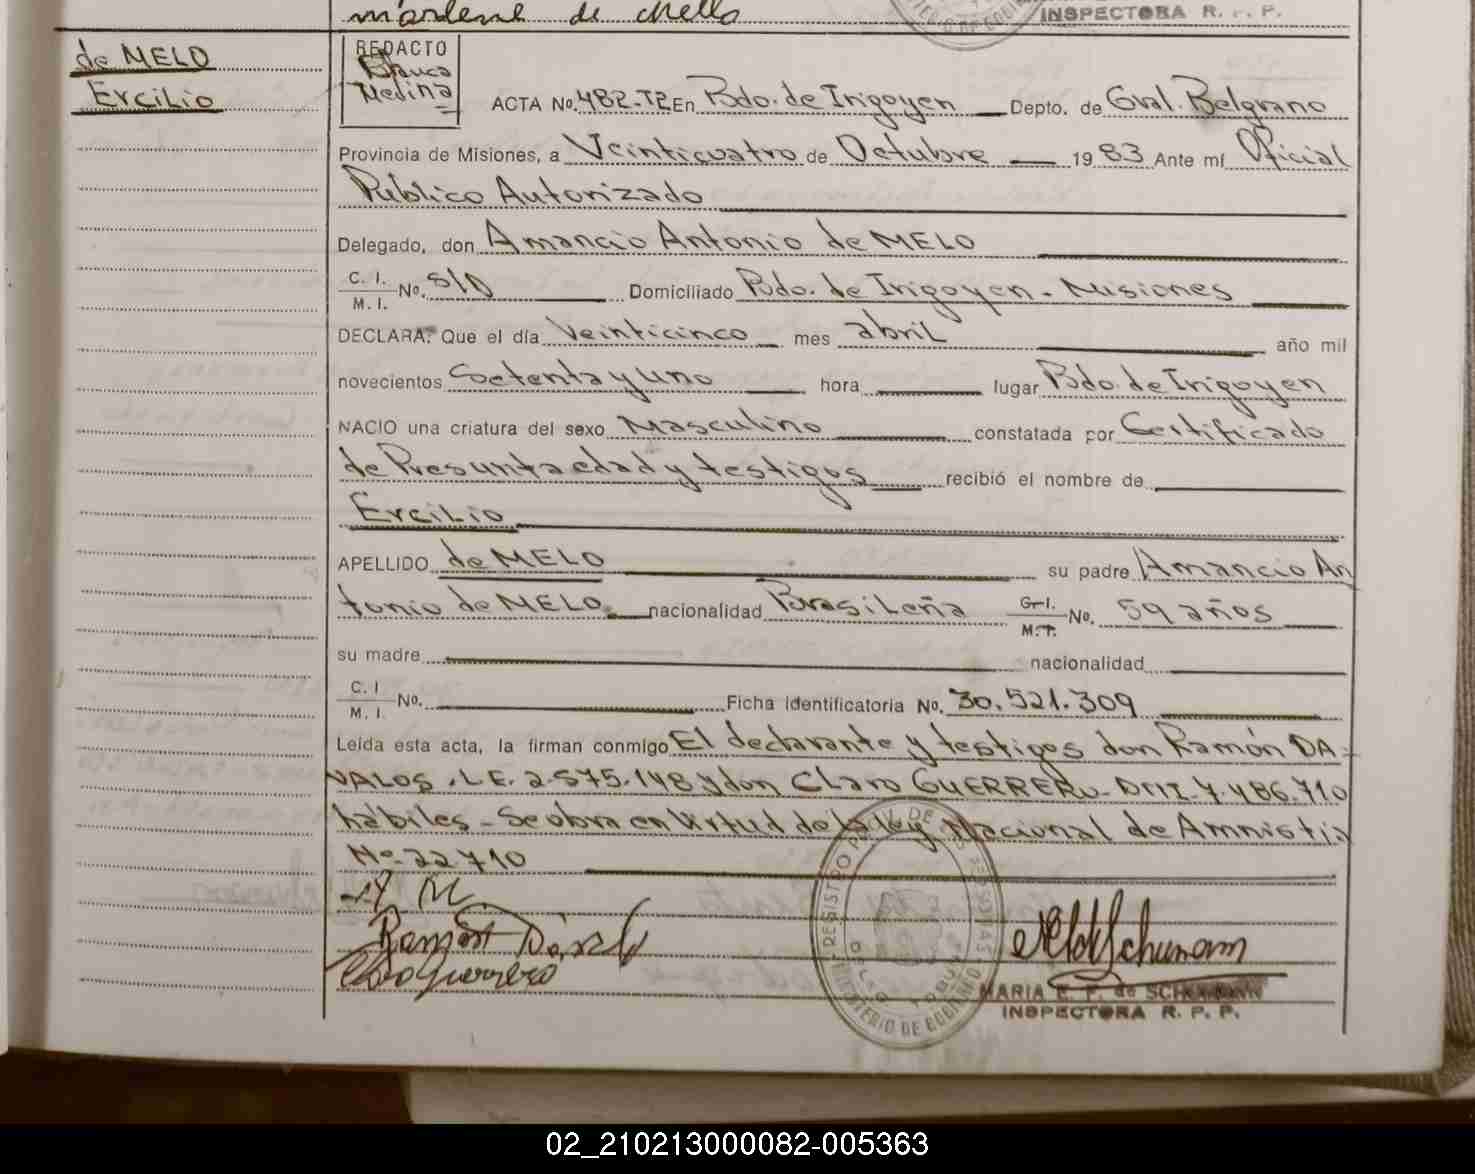 marlene de Mello
INSPECTORA R. P. P.
de MELO
Ercilio
REDACTO
Blanca
Medina
ACTA No. 482-T2 En Bdo. de Irigoyen Depto. de Gral. Belgrano
Provincia de Misiones, a Veinticuatro de Octubre 19 83 Ante mí Oficial
Público Autorizado
Delegado, don Amancio Antonio de MELO
C. I.
M. I. No. S/D Domiciliado Bdo. de Irigoyen - Misiones
DECLARA: Que el día Veinticinco mes abril año mil
novecientos Setenta y uno hora lugar Bdo. de Irigoyen
NACIO una criatura del sexo Masculino constatada por Certificado
de Presunta edad y testigos recibió el nombre de
Ercilio
APELLIDO de MELO su padre Amancio An
tonio de MELO. nacionalidad Brasileña C. I. M. I. No. 59 años
su madre nacionalidad
C. I
M. I. No. Ficha identificatoria No. 30.521.309
Leída esta acta, la firman conmigo El declarante y testigos don Ramón DA-
VALOS. L.E. 2.575.148 y don Claro GUERRERO - DNI. 7.486.710
hábiles - Se obra en Virtud de la ley Nacional de Amnistía
Nº 22710
Ramon Dávalo
Claro Guerrero
REGISTRO
MINISTERIO DE GOBIERNO
MARIA E. F. de SCHUMANN
INSPECTORA R. P. P.
02_210213000082-005363